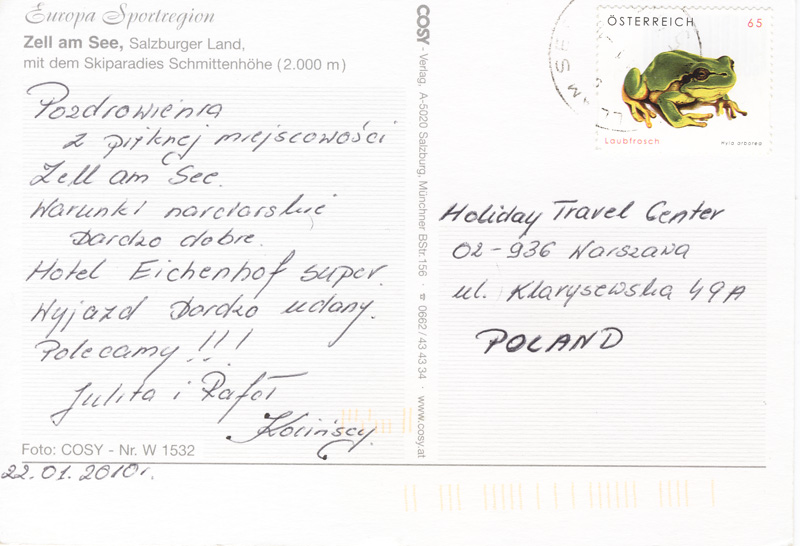 Europa Sportregion
Zell am See, Salzburger Land,
mit dem Skiparadies Schmittenhöhe (2.000 m)
Pozdrowienia
z pięknej miejscowości
Zell am See.
Warunki narciarskie
bardzo dobre.
Hotel Eichenhof super.
Wyjazd bardzo udany.
Polecamy!!!
Julita i Rafał
Kocińscy.
Foto: COSY - Nr. W 1532
22.01.2010r.
COSY - Verlag, A-5020 Salzburg, Münchner BStr.156 · ☎ 0662 / 43 43 34 · www.cosy.at
ÖSTERREICH 65
Laubfrosch Hyla arborea
Holiday Travel Center
02-936 Warszawa
ul. Klarysewska 49A
POLAND